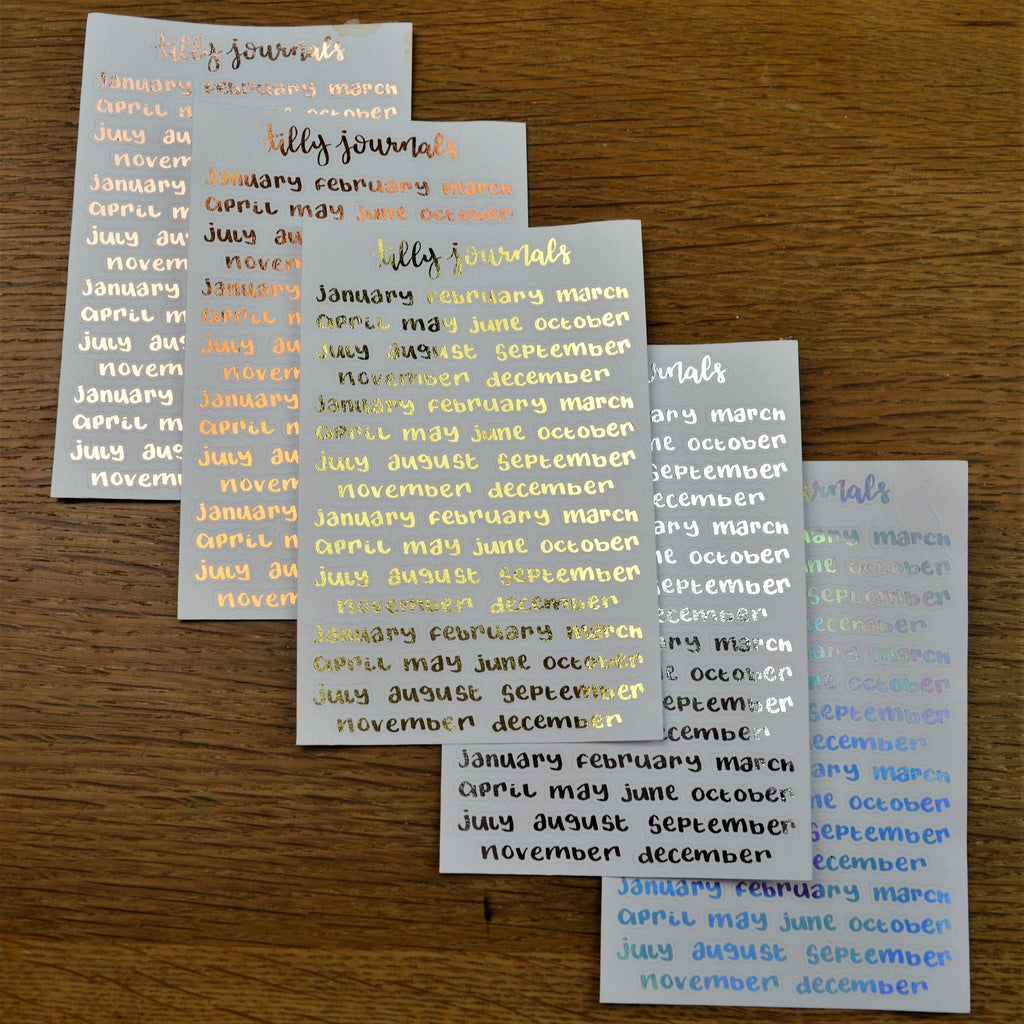 tilly journals
january february march
april m october
july au
novem
january
april m
july au
novem
january
april m
july aug
novem
january
april m
july aug
novem
tilly journals
january february march
april may june october
july au
novem
january
april m
july au
novem
january
july au
novem
january
april m
july au
novem
tilly journals
january february march
april may june october
july august september
november december
january february march
april may june october
july august september
november december
january february march
april may june october
july august september
november december
january february march
april may june october
july august september
november december
urnals
ary march
ne october
september
ecember
ary march
ne october
september
ecember
ry march
e october
september
cember
january february march
april may june october
july august september
november december
urnals
uary march
une october
september
december
uary march
ne october
september
ecember
ary march
ne october
september
ecember
january february march
april may june october
july august september
november december